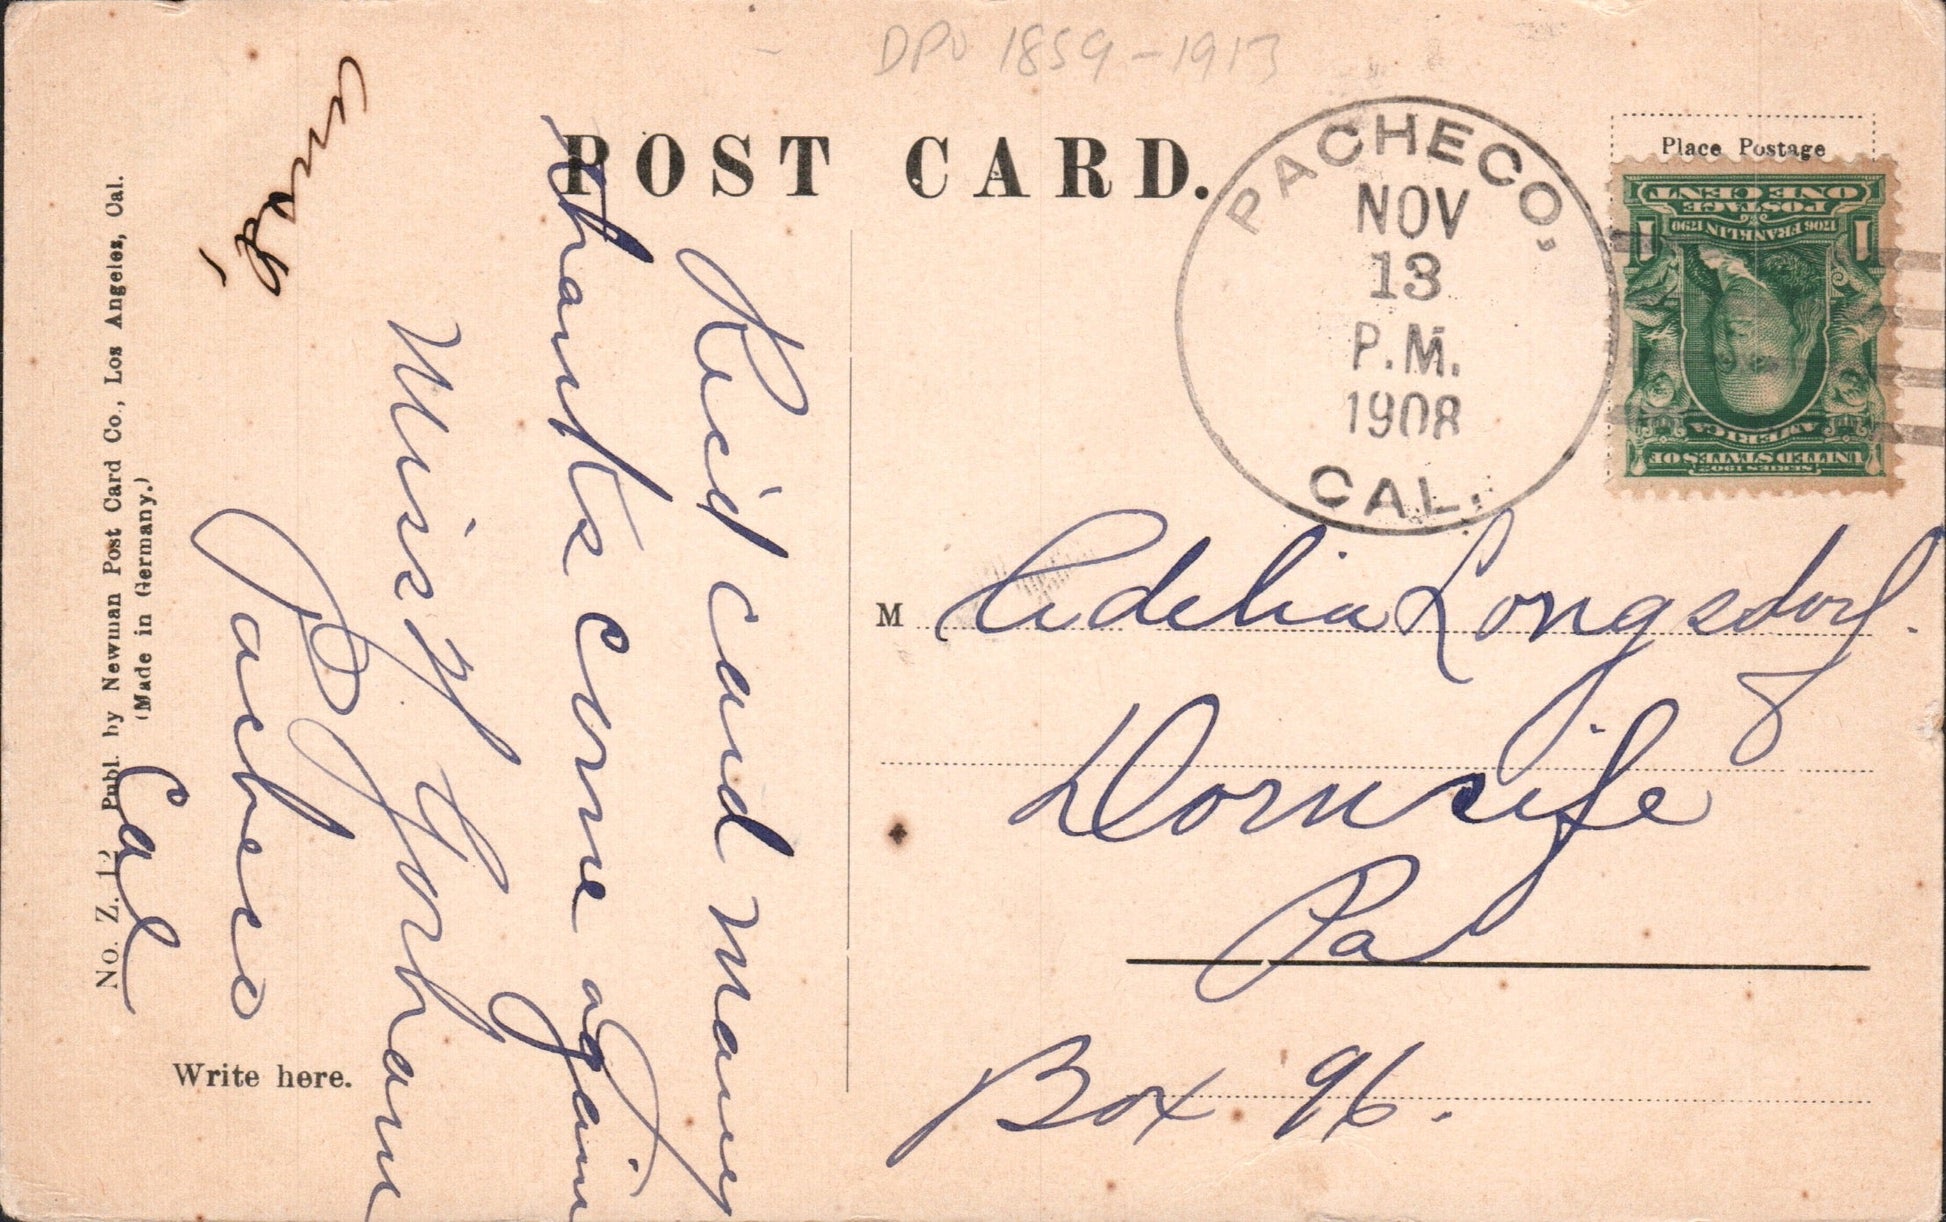 DPO 1859-1913
POST CARD.
PACHECO,
NOV
13
P.M.
1908
CAL.
Place Postage
ONE CENT
POSTAGE
1706 FRANKLIN 1790
1 1
AMERICA
UNITED STATES OF
SERIES 1902
No. Z. 12 Publ. by Newman Post Card Co., Los Angeles, Cal.
(Made in Germany.)
Rec'd card many
thanks come again
Gorham
Pacheco
Cal
Write here.
M Adelia Longsdorf.
Dornsife
Pa
Box 96.